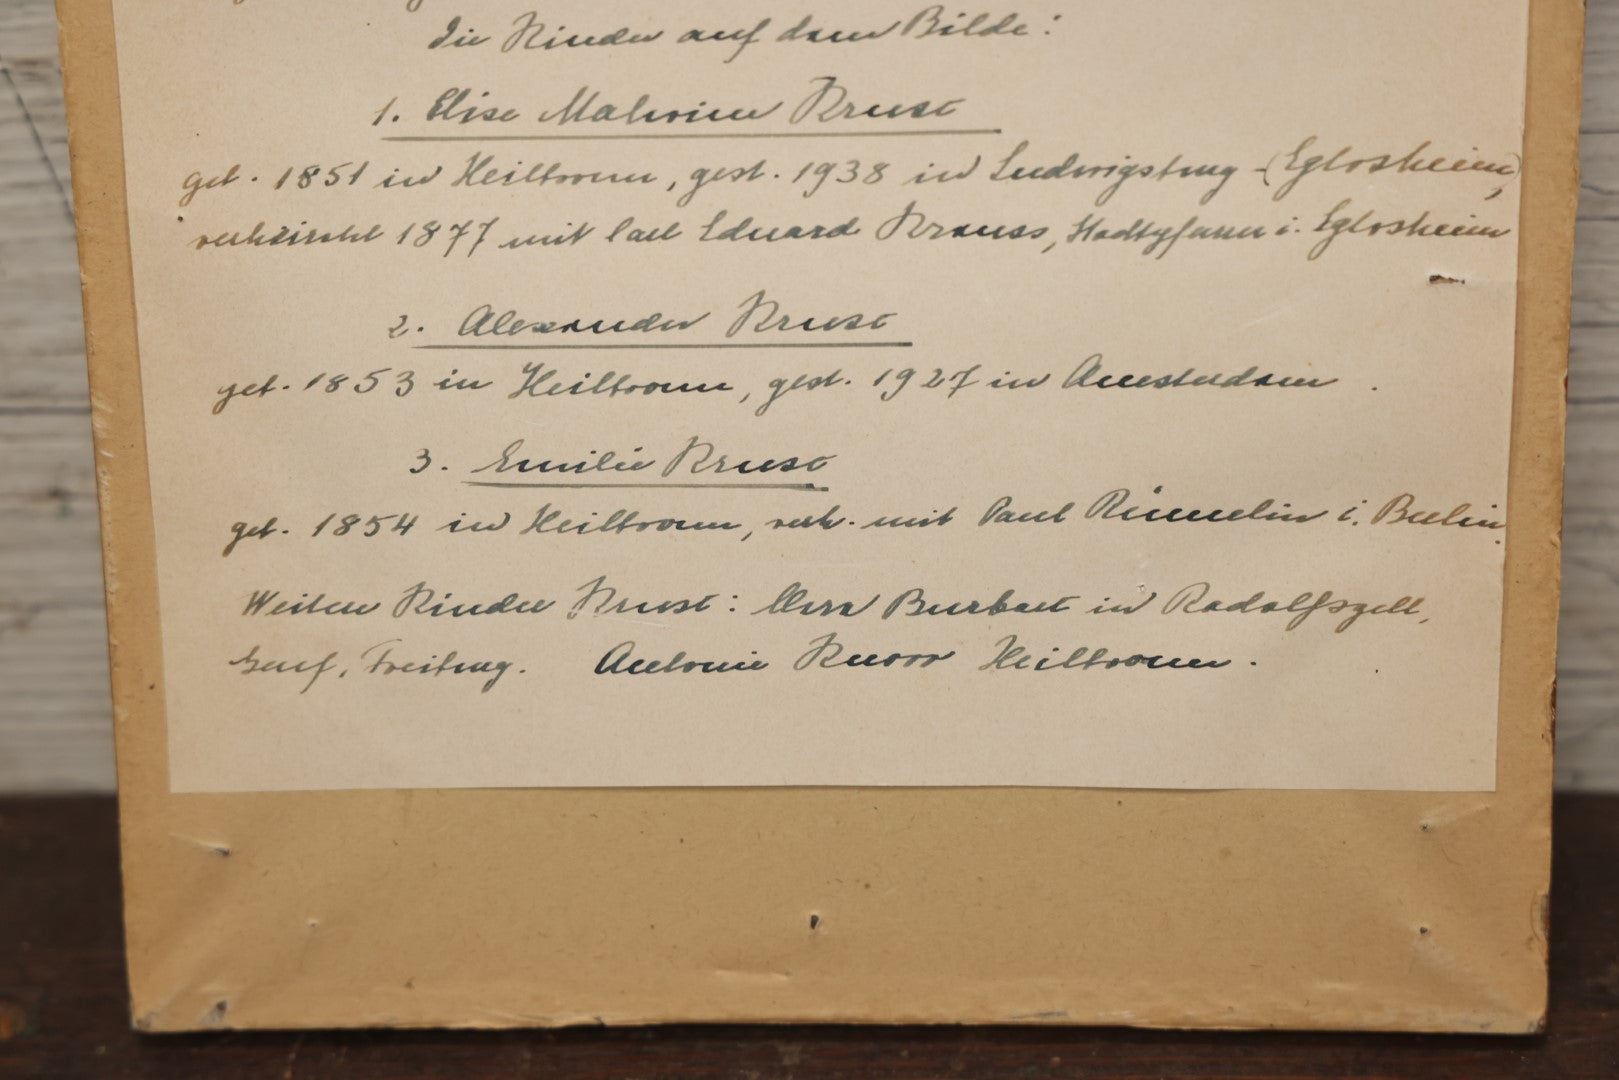 Die Kinder auf dem Bilde:
1. Elise Malwine Kruse
geb. 1851 in Heilbronn, gest. 1938 in Ludwigsburg-(Eglosheim),
verheiratet 1877 mit Carl Eduard Krauss, Stadtpfarrer i. Eglosheim
2. Alexander Kruse
geb. 1853 in Heilbronn, gest. 1927 in Amsterdam.
3. Emilie Kruse
geb. 1854 in Heilbronn, verh. mit Paul Rümelin i. Berlin.
Weitere Kinder Kruse: Clara Burbaet in Radolfszell,
Genf, Freiburg. Antonie Knorr Heilbronn.